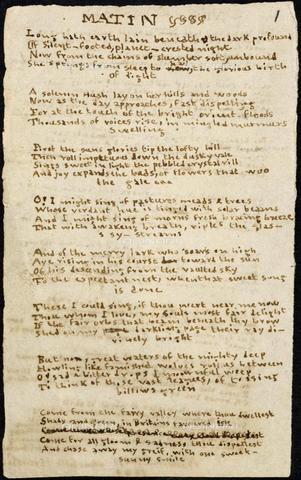 MATIN
1
Long hath earth lain beneath the dark profound
Of silent-footed, planet-crested night
Now from the chains of slumber soft unbound
She springs from sleep to hail the glorious birth
of light
A solemn hush lay on her hills and woods
Now as the day approaches, fast dispelling
For at the touch of the bright orient floods
Thousands of voices rise, in mingled murmurs
swelling
First the suns glories tip the lofty hill
Then roll impetuous down the dusky vale
Sings sweet in light the pebbled crystal rill
And joy expands the buds of flowers that woo
the gale
O! I might sing of pastures meads & trees
Whose verdant hue is tinged with solar beams
And I might sing of morns fresh bracing breeze
That with awakening breath, riples the glas-
sy - streams
And of the merry lark who soars on high
Aye rising in his course toward the sun
Of his descending from the vaulted sky
To the expectant nest, when that sweet song
is done
These I could sing, if thou wert near me now
Thou whom I love, my souls most fair delight
If the fair orbs that beam beneath thy brow
Shed on my darkling page their ray di-
vinely bright
But now, great waters of the mighty deep
Howling like famished wolves roll us between
O! sad & bitter drops I mournful weep
To think of those vast leagues, of tossing
billows green
Come from the fairy valley where thou dwellest
Shady and green, is Britains favoured isle
Come for all gloom & sadness thou dispellest
And chase away my greif, with one sweet-
sunny smile